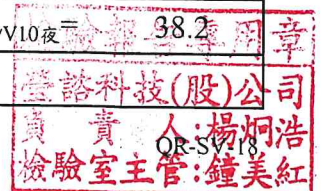 V10夜= 38.2
檢驗報告專用章
瑩諮科技(股)公司
負責人:楊炯浩
QR-SV-18
檢驗室主管:鐘美紅